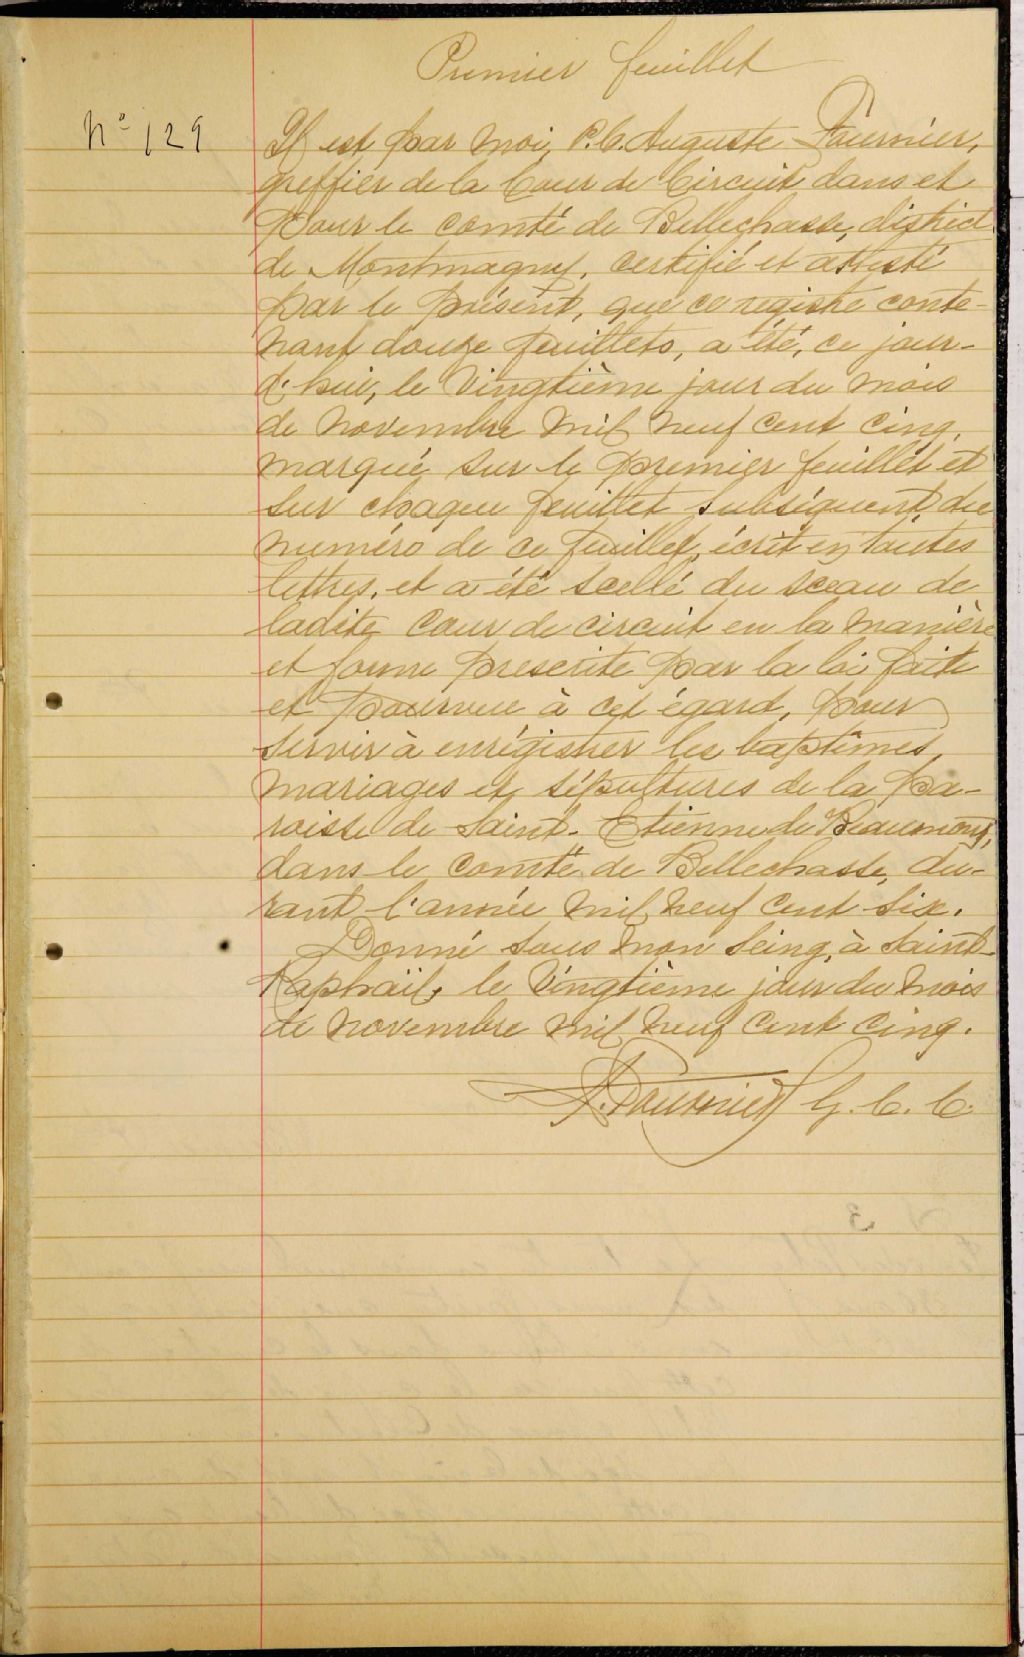 Premier feuillet
No 129
Il est, par moi, P. C. Auguste Fournier,
greffier de la Cour de Circuit dans et
pour le comté de Bellechasse, district
de Montmagny, certifié et attesté
par le présent, que ce registre conte-
nant douze feuillets, a été, ce jour-
d'hui, le vingtième jour du mois
de novembre mil neuf cent cinq,
marqué sur le premier feuillet et
sur chaque feuillet subséquent, du
numéro de ce feuillet, écrit en toutes
lettres, et a été scellé du sceau de
ladite Cour de circuit en la manière
et forme prescrite par la loi faite
et pourvue à cet égard, pour
servir à enrégistrer les baptêmes,
mariages et sépultures de la pa-
roisse de Saint-Etienne de Beaumont,
dans le comté de Bellechasse, du-
rant l'année mil neuf cent six.
Donné sous mon seing, à Saint-
Raphaël, le vingtième jour du mois
de novembre mil neuf cent cinq.
A. Fournier G. C. C.